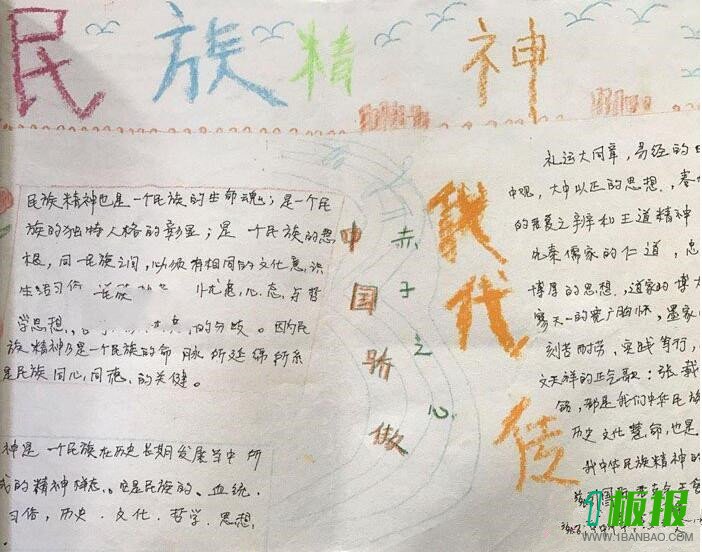 民族精神
民族精神也是一个民族的生命魂；是一个民
族的独特人格的彰显；是一个民族的思
根，同一民族之间，必须有相同的文化意识
生活习俗
心态，与哲
学思想，的分歧。因为民
族精神乃是一个民族的命脉所延绵所系
是民族同心，同德，的关健。
神是一个民族在历史长期发展当中所
成的精神样态。它是民族的、血统.
习俗，历史.文化.哲学.思想，
中国骄傲
赤子之心
我代传
礼运大同章，易经的
中观，大中以正的思想，春
的 王道精神
先秦儒家的仁道，忠
博厚的思想，道家的博大
寥天一的宽广胸怀，墨家
刻苦耐劳，实践笃行，
文天祥的正气歌：张载
铭，都是我们中华民族
历史文化慧命，也是
我中华民族精神的
1板报
WWW.1BANBAO.COM